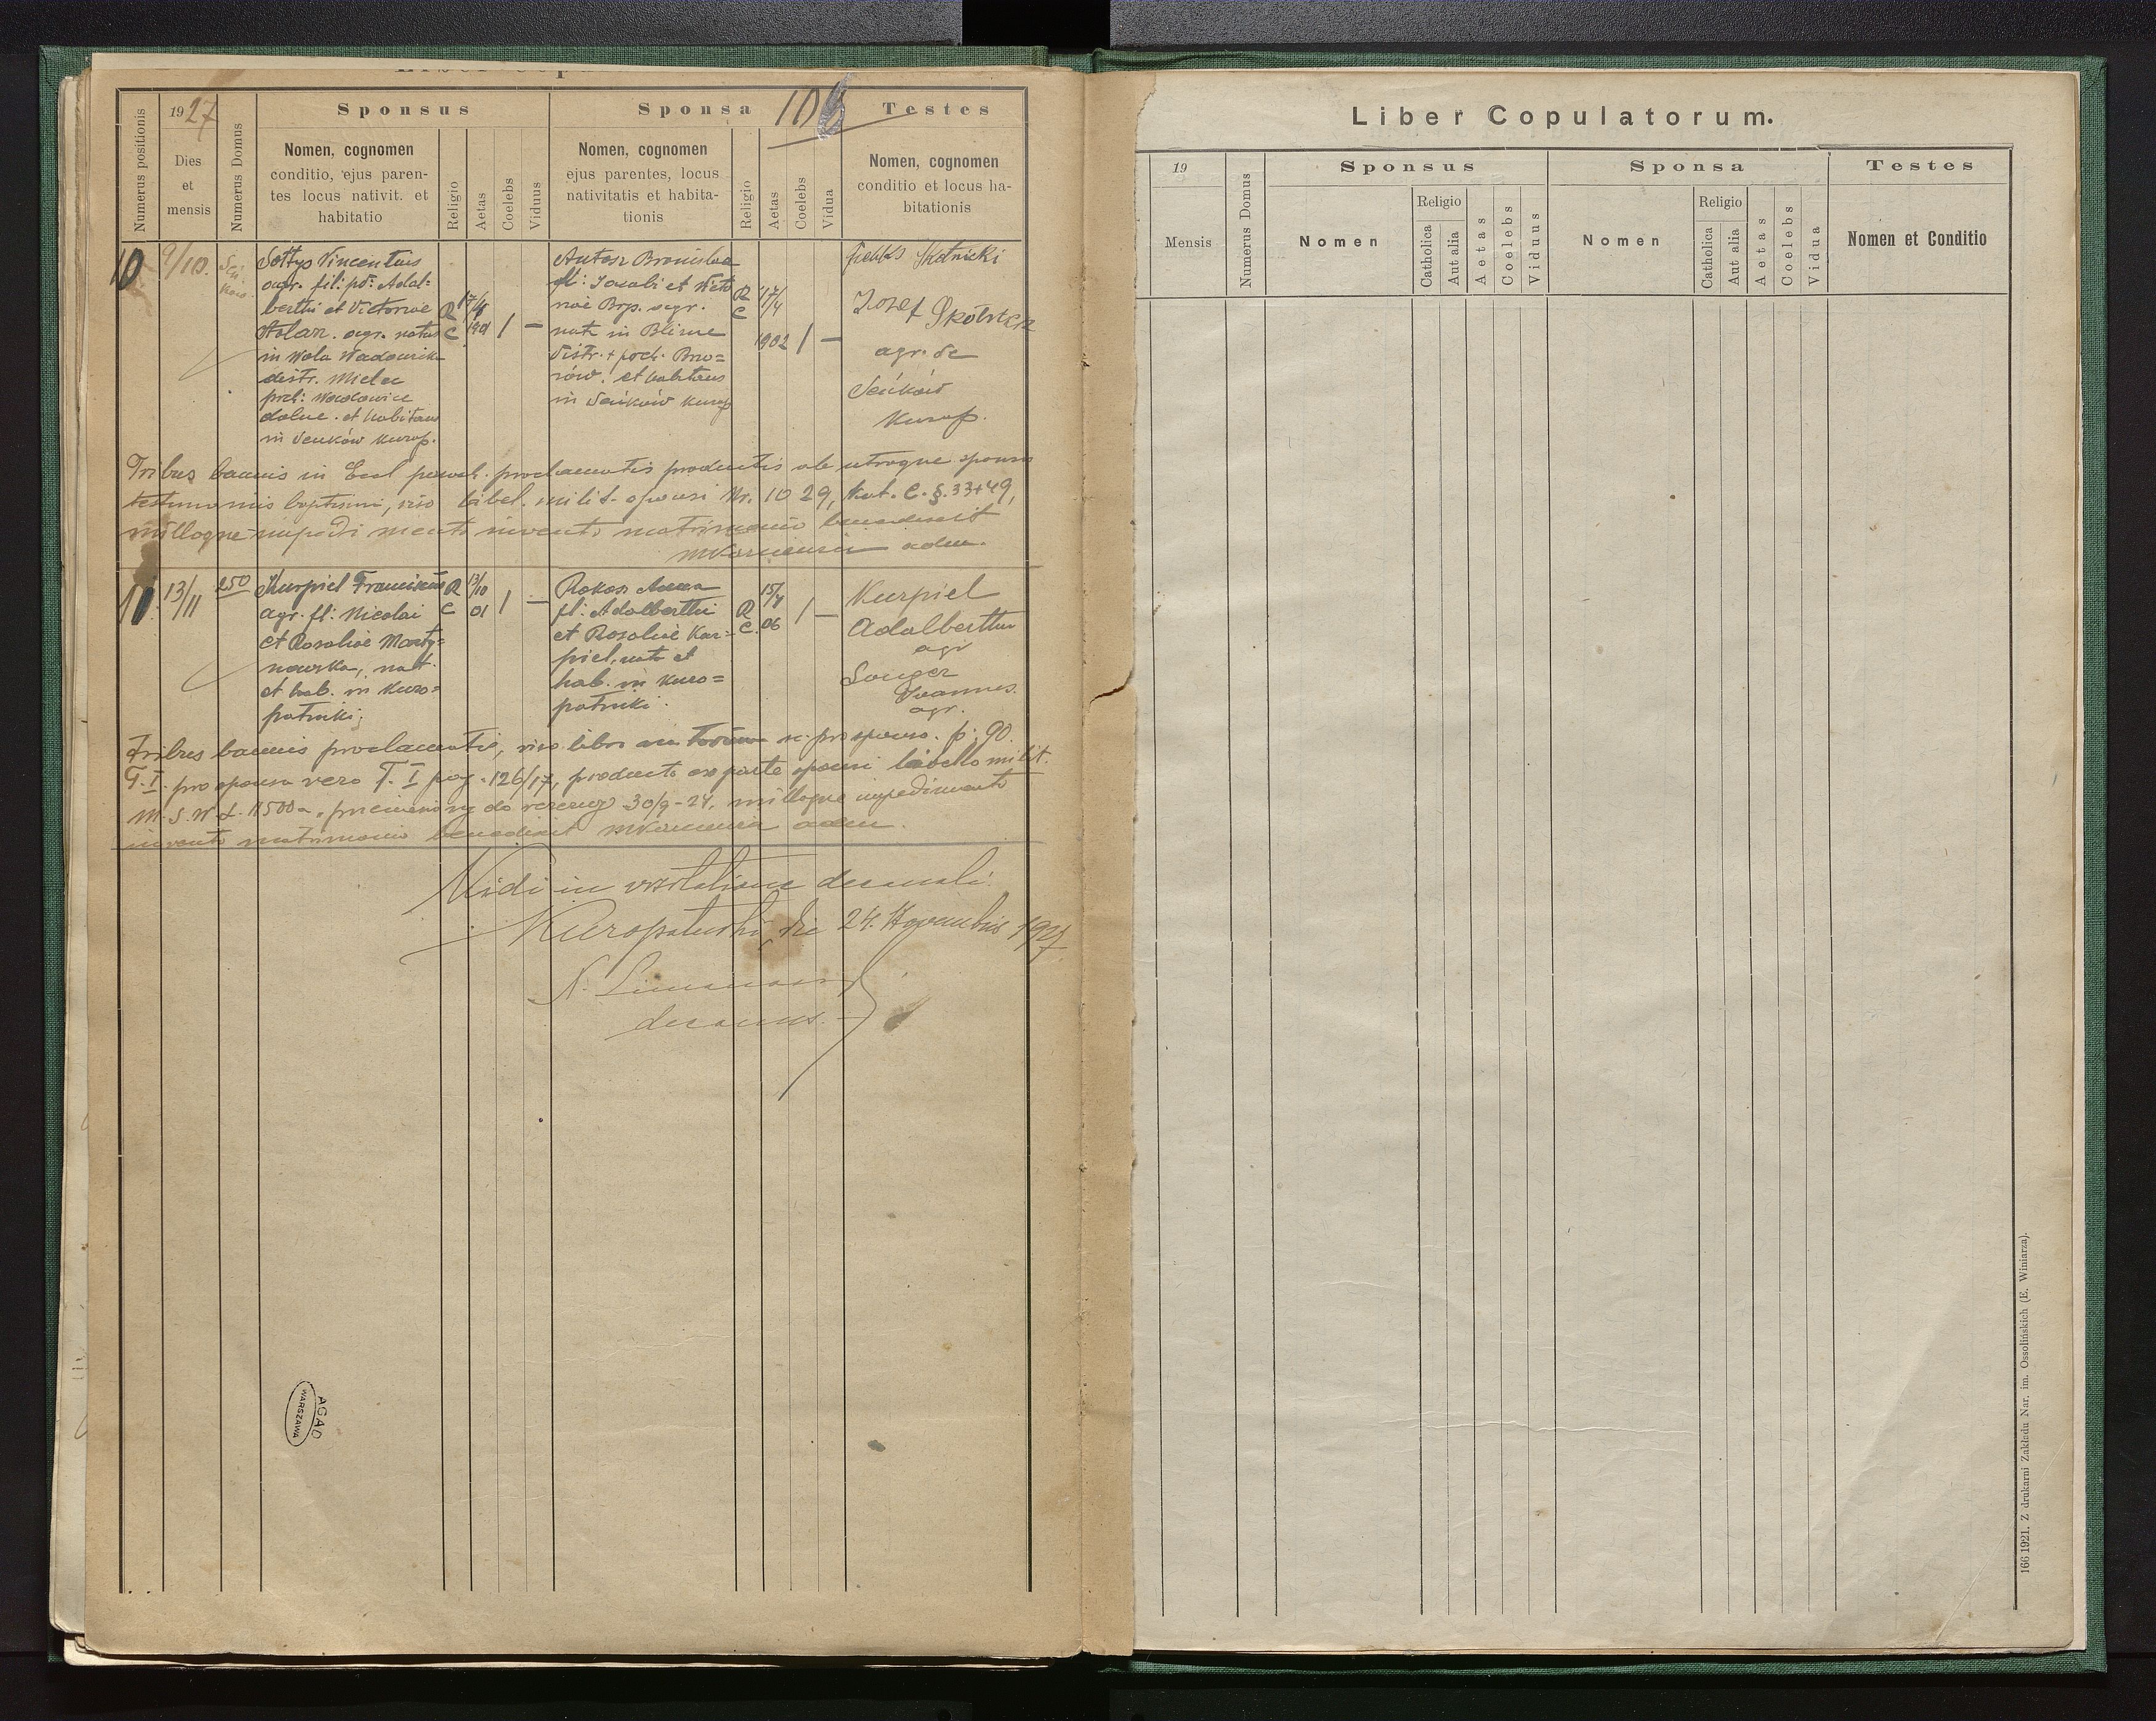 1927
106
Sponsus
Sponsa
Testes
Numerus positionis
Dies
et
mensis
Numerus Domus
Nomen, cognomen
conditio, ejus paren-
tes locus nativit. et
habitatio
Religio
Aetas
Coelebs
Viduus
Nomen, cognomen
ejus parentes, locus
nativitatis et habita-
tionis
Religio
Aetas
Coelebs
Vidua
Nomen, cognomen
conditio et locus ha-
bitationis
10
9/10.
Sołtys Vincentius
agr. fil: pd: Adal=
berthi et Victoriae
Stolarz. agr. natus
in Wola Wadowska
distr. Mielec
prch: Wadowice
dolne. et habitans
in Seńków Kurop.
R
C
1901
1
—
Antosz Bronislava
fl: Jacobi et Victo
riae agr.
nata in
distr. + prch. Brzo=
zów. et habitans
in Seńków Kurop
R
C
17/4
1902
1
—
Feliks Skotnicki
Jozef
agr. de
Seńków
Kurop.
Tribus bannis in Eccl paroch. proclamatis productis ab utroque sponso
testimoniis baptismi, viso libel. milit. sponsi Nr. 1029, §. 33+49,
nulloque impedimento invento matrimonio benedixit
adm.
11.
13/11
250
Kurpiel Franciscus
agr. fl: Nicolai
et Rosaliae Marty=
nowska, nat.
et hab. in Kuro=
patniki;
R
C
13/10
01
1
—
Rokosz Anna
fl: Adalberthi
et Rosaliae Kur=
piel, nata et
hab. in Kuro=
patniki.
R
C.
15/7
06
1
—
Kurpiel
Adalberthus
agr
Joannes.
agr.
Tribus bannis proclamatis, viso libro natorum pro sponso. p. 90.
T. I. pro sponsa vero T. I pag. 126/17, producto ex parte sponsi libello milit.
M. S. W. przeniesiony do rezerwy 30/9-24, nulloque impedimento
invento matrimonio benedixit adm.
Vidi in visitatione decanali.
Kuropatniki, die 24. Novembris 1927
decanus.
AGAD
WARSZAWA
Liber Copulatorum.
19
Mensis
Numerus Domus
Sponsus
Nomen
Religio
Catholica
Aut alia
Aetas
Coelebs
Viduus
Sponsa
Nomen
Religio
Catholica
Aut alia
Aetas
Coelebs
Vidua
Testes
Nomen et Conditio
166 1921. Z drukarni Zakładu Nar. im. Ossolińskich (E. Winiarza).